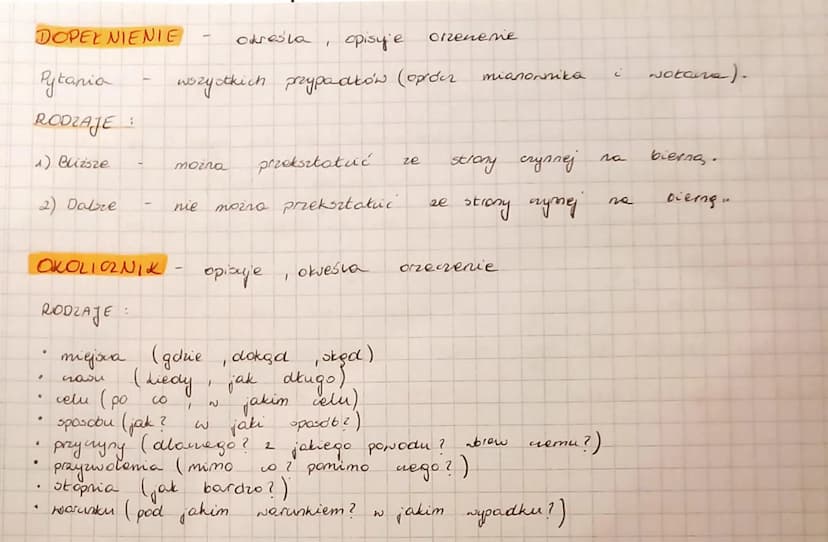 DOPEŁNIENIE - określa, opisuje orzeczenie
Pytania - wszystkich przypadków (oprócz mianownika i wołacza).
RODZAJE:
1) Bliższe - można przekształcić ze strony czynnej na bierną.
2) Dalsze - nie można przekształcić ze strony czynnej na bierną..
OKOLICZNIK - opisuje, określa orzeczenie
RODZAJE:
• miejsca (gdzie, dokąd, skąd)
• czasu (kiedy, jak długo)
• celu (po co, w jakim celu)
• sposobu (jak? w jaki sposób?)
• przyczyny (dlaczego? z jakiego powodu? wbrew czemu?)
• przyzwolenia (mimo co? pomimo czego?)
• stopnia (jak bardzo?)
• warunku (pod jakim warunkiem? w jakim wypadku?)